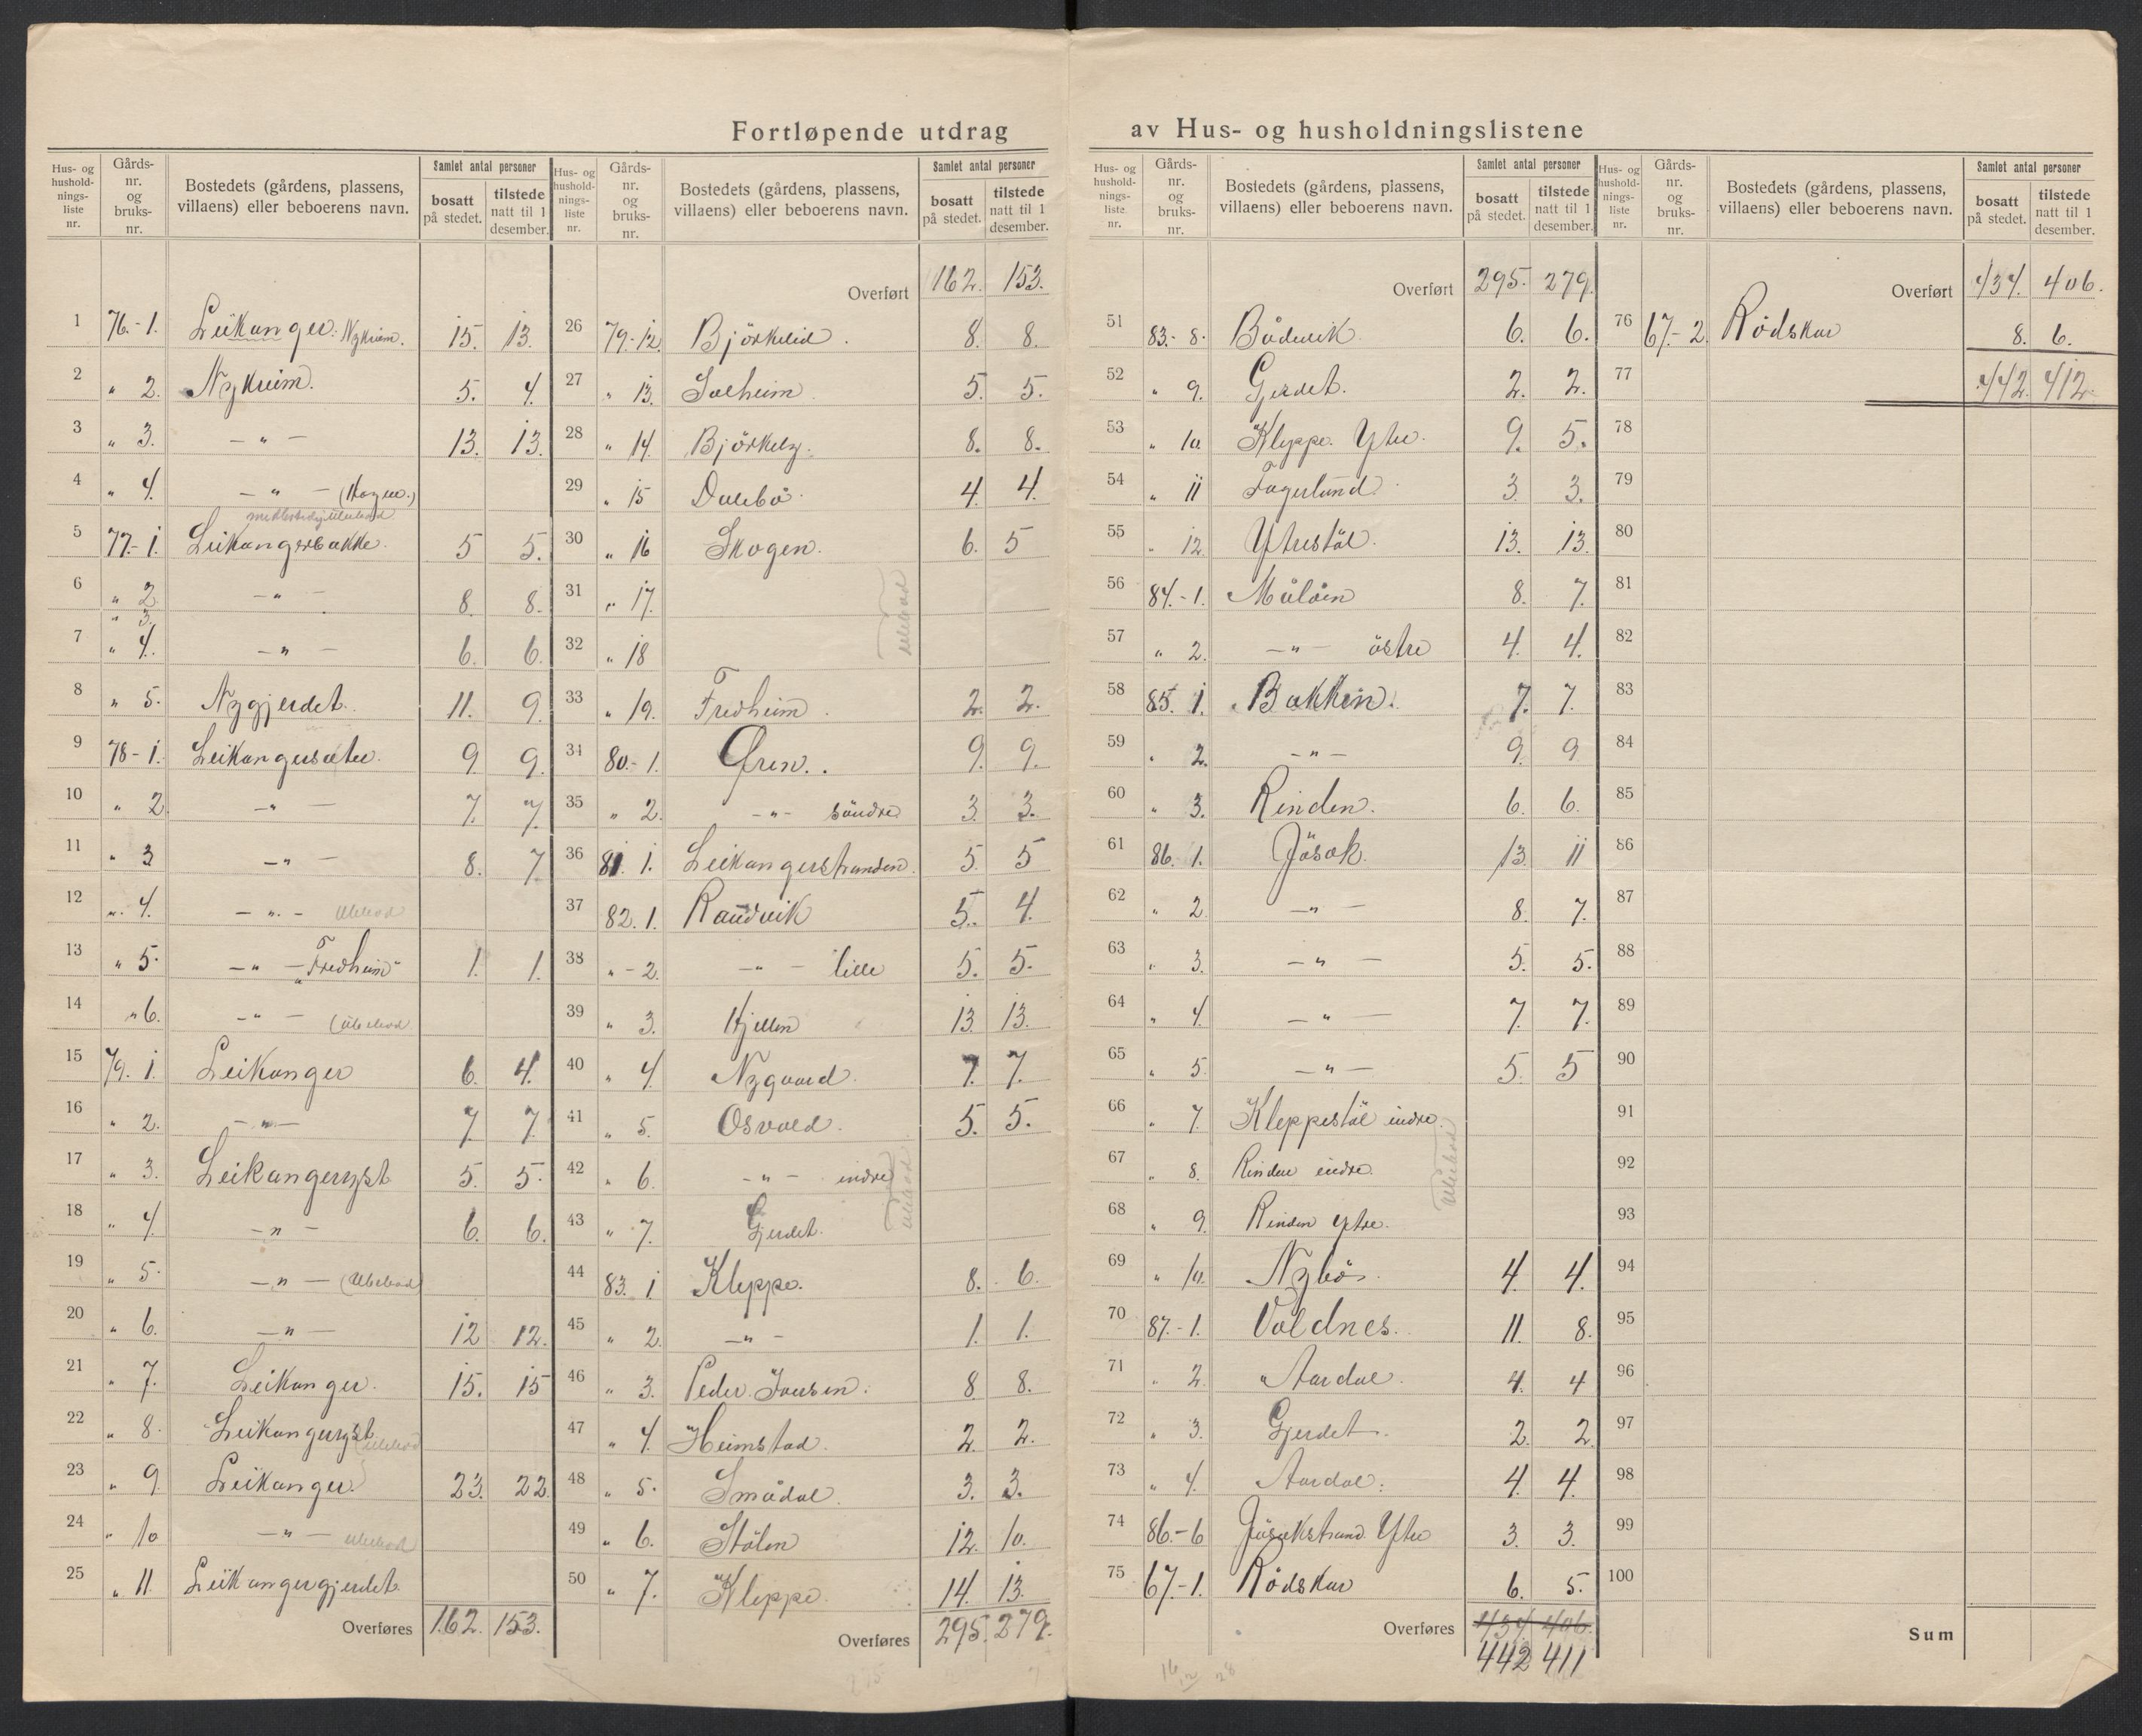 Fortløpende utdrag av Hus- og husholdningslistene
Hus- og hushold-nings-liste nr. Gårds-nr. og bruks-nr. Bostedets (gårdens, plassens, villaens) eller beboerens navn. Samlet antal personer bosatt på stedet. tilstede natt til 1 desember.
1 76.-1. Leikanger. Nykreim. 15. 13.
2 " 2. Nykreim. 5. 4.
3 " 3. — " — 13. 13.
4 " 4. — " — (Hagen.)
ubebodd
5 77.-1. Leikangerbakke. 5 5.
6 " 2 — " — 8. 8.
" 3.
7 " 4. — " — 6. 6.
8 " 5. Nygjerdet. 11. 9.
9 78-1. Leikangersæter. 9. 9.
10 " 2. — " — 7. 7.
11 " 3 — " — 8. 7.
12 " 4. — " — Ubebod
13 " 5. — " — "Fredheim" 1. 1.
14 " 6. — " — (Ubebod
15 79. 1. Leikanger 6. 4.
16 " 2. — " — 7. 7.
17 " 3. Leikangeryst 5. 5.
18 " 4. — " — 6. 6.
19 " 5. — " — (Ubebod)
20 " 6. — " — 12 12.
21 " 7. Leikanger. 15. 15
22 " 8. Leikangeryst (Ubebod
23 " 9. Leikanger 23. 22
24 " 10 — " — Ubebod
25 " 11. Leikangergjerdet.
Overføres 162. 153.
Hus- og hushold-nings-liste nr. Gårds-nr. og bruks-nr. Bostedets (gårdens, plassens, villaens) eller beboerens navn. Samlet antal personer bosatt på stedet. tilstede natt til 1 desember.
Overført 162. 153.
26 79.-12. Björkelid. 8. 8.
27 " 13. Solheim. 5. 5.
28 " 14. Björkely. 8. 8.
29 " 15 Dalebö. 4. 4.
30 " 16 Skogen. 6. 5
31 " 17.
Ubebod
32 " 18
33 " 19. Fredheim. 2. 2.
34 80.-1. Øren. 9. 9.
35 " 2. — " — söndre 3. 3.
36 81. 1. Leikangerstranden. 5. 5
37 82. 1. Raudvik 5. 4.
38 " - 2. — " — lille 5. 5.
39 " 3. Hjellen 13. 13.
40 " 4. Nygaard. 7. 7.
41 " 5. Osvold. 5. 5.
42 " 6. — " — indre
Ubebod
43 " 7. Gjerdet.
44 83. 1 Kleppe. 8. 6.
45 " 2. — " — 1. 1.
46 " 3. Peder Iversen. 8 8.
47 " 4. Heimstad. 2. 2.
48 " 5. Smådal. 3. 3.
49 " 6. Stölen 12. 10.
50 " 7. Kleppe. 14. 13.
Overføres 295. 279.
Hus- og hushold-nings-liste nr. Gårds-nr. og bruks-nr. Bostedets (gårdens, plassens, villaens) eller beboerens navn. Samlet antal personer bosatt på stedet. tilstede natt til 1 desember.
Overført 295. 279.
51 83.- 8. Bådsvik. 6. 6.
52 " 9. Gjerdet. 2. 2.
53 " 10. Kleppe. Ytre. 9. 5.
54 " 11 Fagerlund. 3. 3.
55 " 12 Ytrestöl. 13. 13.
56 84.-1. Målöin 8. 7.
57 " 2. — " — östre 4. 4.
58 85. 1. Bakken. 7. 7.
59 " 2. — " — 9. 9
60 " 3. Rinden. 6. 6.
61 86. 1. Jösok. 13. 11
62 " 2. — " — 8. 7.
63 " 3. — " — 5. 5.
64 " 4. — " — 7. 7.
65 " 5. — " — 5. 5
66 " 7. Kleppestöl indre.
67 " 8. Rinden indre.
Ubebod
68 " 9. Rinden ytre.
69 " 10. Nybö. 4. 4.
70 87.-1. Voldnes. 11. 8.
71 " 2. Aardal. 4. 4
72 " 3. Gjerdet. 2. 2.
73 " 4. Aardal. 4. 4.
74 86.-6 Jösokstrand Ytre 3. 3.
75 67.-1. Rödskar 6. 5.
Overføres 434. 406.
442 411
16/12 28
Hus- og hushold-nings-liste nr. Gårds-nr. og bruks-nr. Bostedets (gårdens, plassens, villaens) eller beboerens navn. Samlet antal personer bosatt på stedet. tilstede natt til 1 desember.
Overført 434. 406.
76 67.-2. Rödskar 8. 6.
77 442. 412
78
79
80
81
82
83
84
85
86
87
88
89
90
91
92
93
94
95
96
97
98
99
100
Sum